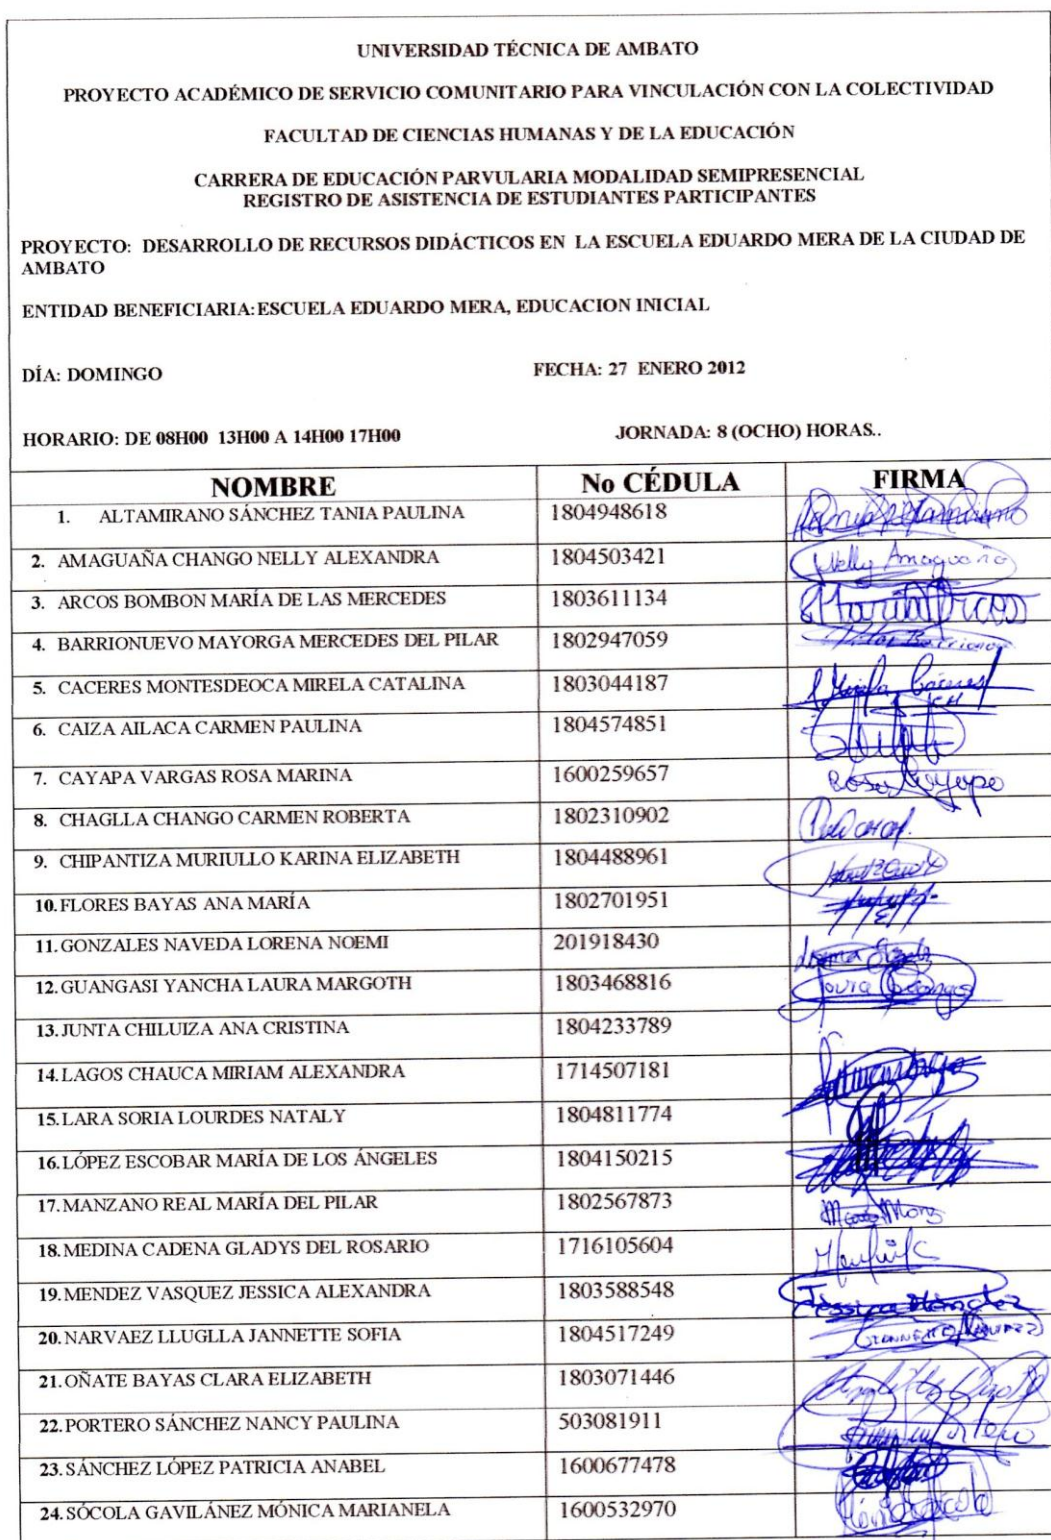 UNIVERSIDAD TÉCNICA DE AMBATO
PROYECTO ACADÉMICO DE SERVICIO COMUNITARIO PARA VINCULACIÓN CON LA COLECTIVIDAD
FACULTAD DE CIENCIAS HUMANAS Y DE LA EDUCACIÓN
CARRERA DE EDUCACIÓN PARVULARIA MODALIDAD SEMIPRESENCIAL
REGISTRO DE ASISTENCIA DE ESTUDIANTES PARTICIPANTES
PROYECTO: DESARROLLO DE RECURSOS DIDÁCTICOS EN LA ESCUELA EDUARDO MERA DE LA CIUDAD DE
AMBATO
ENTIDAD BENEFICIARIA: ESCUELA EDUARDO MERA, EDUCACION INICIAL
DÍA: DOMINGO FECHA: 27 ENERO 2012
HORARIO: DE 08H00 13H00 A 14H00 17H00 JORNADA: 8 (OCHO) HORAS..
NOMBRE No CÉDULA FIRMA
1. ALTAMIRANO SÁNCHEZ TANIA PAULINA 1804948618
2. AMAGUAÑA CHANGO NELLY ALEXANDRA 1804503421 Nelly Amaguaña
3. ARCOS BOMBON MARÍA DE LAS MERCEDES 1803611134
4. BARRIONUEVO MAYORGA MERCEDES DEL PILAR 1802947059
5. CACERES MONTESDEOCA MIRELA CATALINA 1803044187
6. CAIZA AILACA CARMEN PAULINA 1804574851
7. CAYAPA VARGAS ROSA MARINA 1600259657 Rosa Cayapa
8. CHAGLLA CHANGO CARMEN ROBERTA 1802310902
9. CHIPANTIZA MURIULLO KARINA ELIZABETH 1804488961
10. FLORES BAYAS ANA MARÍA 1802701951
11. GONZALES NAVEDA LORENA NOEMI 201918430
12. GUANGASI YANCHA LAURA MARGOTH 1803468816
13. JUNTA CHILUIZA ANA CRISTINA 1804233789
14. LAGOS CHAUCA MIRIAM ALEXANDRA 1714507181
15. LARA SORIA LOURDES NATALY 1804811774
16. LÓPEZ ESCOBAR MARÍA DE LOS ÁNGELES 1804150215
17. MANZANO REAL MARÍA DEL PILAR 1802567873
18. MEDINA CADENA GLADYS DEL ROSARIO 1716105604
19. MENDEZ VASQUEZ JESSICA ALEXANDRA 1803588548 Jessica Méndez
20. NARVAEZ LLUGLLA JANNETTE SOFIA 1804517249
21. OÑATE BAYAS CLARA ELIZABETH 1803071446
22. PORTERO SÁNCHEZ NANCY PAULINA 503081911
23. SÁNCHEZ LÓPEZ PATRICIA ANABEL 1600677478
24. SÓCOLA GAVILÁNEZ MÓNICA MARIANELA 1600532970